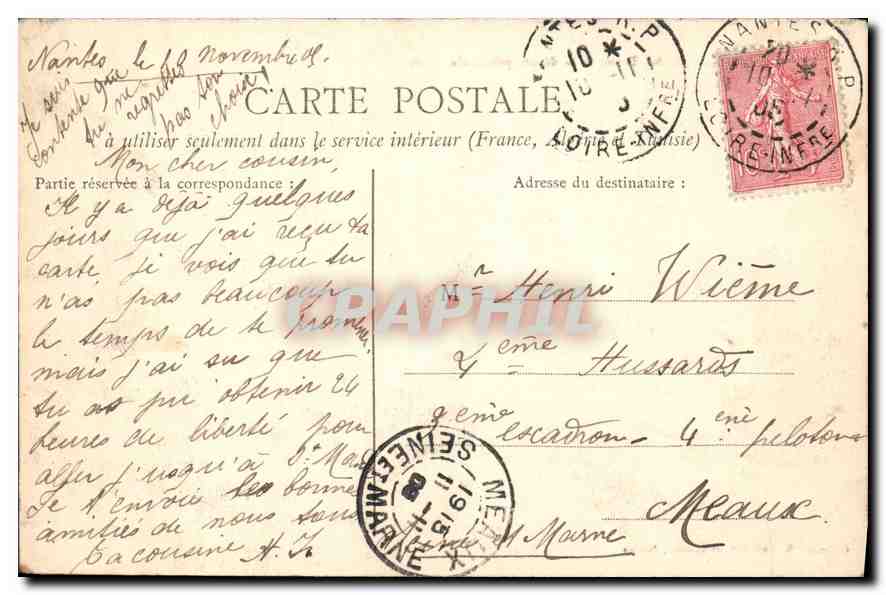 Nantes le 18 Novembre 05.
Je suis
contente que
tu ne
regrettes
pas ton
choix!
CARTE POSTALE
à utiliser seulement dans le service intérieur (France, Algérie et Tunisie)
Mon cher cousin,
Partie réservée à la correspondance :
Il y a déjà quelques
jours que j'ai reçu ta
carte je vois que tu
n'as pas beaucoup
le temps de te promener.
mais j'ai su que
tu as pu obtenir 24
heures de liberté pour
aller jusqu'à
Je t'envoie les bonnes
amitiés de nous tous
Ta cousine
Adresse du destinataire :
Mr Henri Wième
4eme Hussards
eme escadron - 4eme peloton
Meaux
Seine et Marne
NANTES R.P
10 *
LOIRE-INFRE
NANTES R.P
10 *
05
LOIRE-INFRE
10
MEAUX
1915
11
SEINE ET MARNE
CPAPHIL